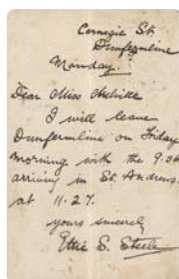 Carnegie St.
Dunfermline
Monday.
Dear Miss Melville
I will leave
Dunfermline on Friday
morning with the 9.04
arriving in St. Andrews.
at 11.27.
yours sincerely
Ettie S. Steele